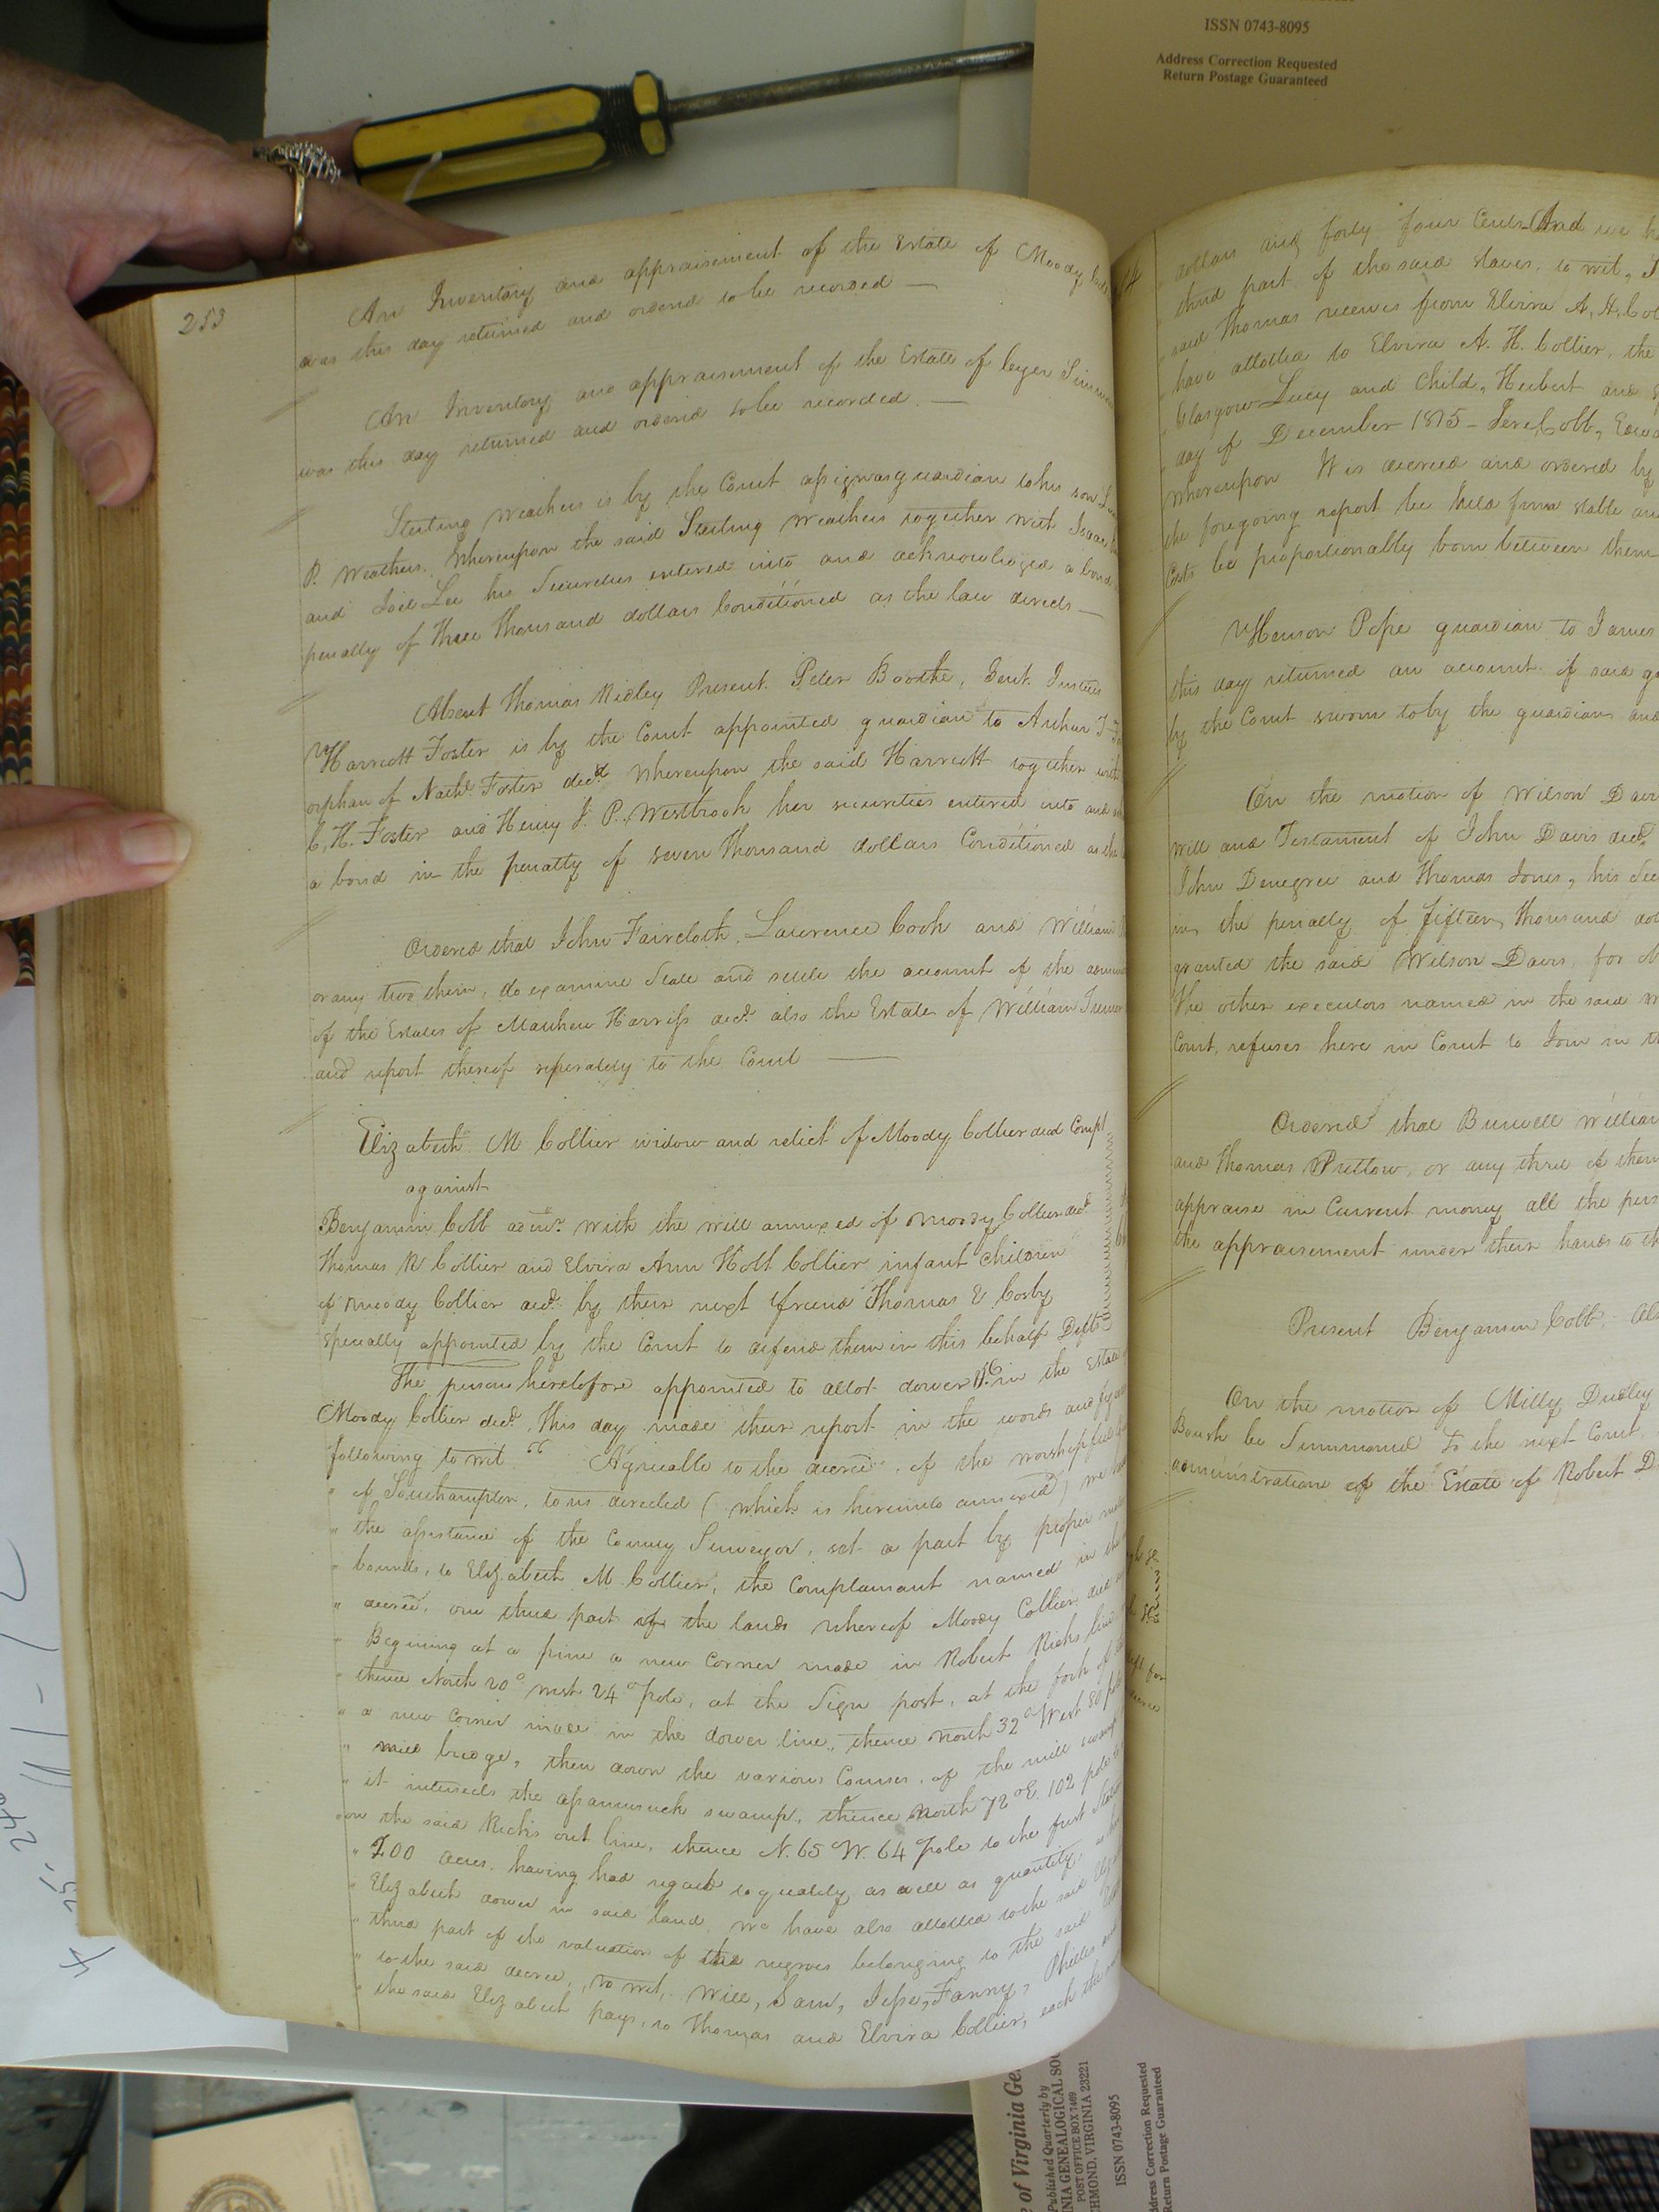 ISSN 0743-8095
Address Correction Requested
Return Postage Guaranteed
253
An Inventory and appraisement of the Estate of Moody
was this day returned and ordered to be recorded —
An Inventory and appraisement of the Estate of
was this day returned and ordered to be recorded. —
Sterling Weathers is by the Court assigned guardian to his son
P. Weathers. Whereupon the said Sterling Weathers together with Isaac
and Joel Lee his Securities entered into and acknowledged a bond
penalty of three thousand dollars Conditioned as the law directs —
Absent Thomas Ridley Present. Peter Boothe, Gent. Justices
Harriott Foster is by the Court appointed guardian to Arthur T
orphan of Nathl. Foster decd. Whereupon the said Harriott together with
C. H. Foster and Henry J. P. Westbrook her securities entered into and
a bond in the penalty of seven thousand dollars Conditioned as the
Ordered that John Faircloth, Lawrence Cook and William
or any two them, do examine State and settle the account of the
of the Estates of Mathew Harriss decd. also the Estate of William
and report thereof seperately to the Court —
Elizabeth M Collier widow and relict of Moody Collier decd Compl.
against
Benjamin Cobb admr. with the will annexed of Moody Collier decd.
Thomas N Collier and Elvira Ann Holt Collier infant children
of Moody Collier decd. by their next friend Thomas E Cosby
specially appointed by the Court to defend them in this behalf Defts.
The persons heretofore appointed to allot dower &c in the Estate
Moody Collier decd. this day made their report in the words and
following to wit “ Agreeable to the decree, of the worshipful
" of Southampton, to us directed (which is hereunto annexed) we
" the assistance of the County Surveyor, set a part by proper
" bounds, to Elizabeth M. Collier, the Complainant named in the
" decree, one third part of the lands whereof Moody Collier died
" Begining at a pine a new Corner made in Robert Ricks line
" thence North 20° West 24 pole, at the Sign post, at the fork of
" a new corner made in the dower line, thence North 32° West 80
" mill bridge, then down the various Courses, of the mill swamp
" it intersects the assamusuck swamp, thence North 72° E. 102 pole
" on the said Ricks out line, thence N. 65 W. 64 pole to the first Station
" 200 acres. having had regard to quality as well as quantity,
" Elizabeth dower in said land, We have also allotted to the said
" third part of the valuation of the negroes belonging to the said
" to the said decree, to wit, Will, Sam, Jesse, Fanny, Phillis
" the said Elizabeth pays, to Thomas and Elvira Collier, each the
dollars and forty four Cents And we
third part of the said slaves, to wit,
said Thomas receives from Elvira A. H.
have allotted to Elvira A. H. Collier, the
Glasgow Lucy and Child, Herbert and
day of December 1815 - Jere Cobb,
Whereupon It is decreed and ordered by
the foregoing report be held firm stable
Costs be proportionally born between them
Henson Pope guardian to James
this day returned an account of said
by the Court sworn to by the guardian and
On the motion of Wilson Davis
will and Testament of John Davis decd.
John Denegree and Thomas Jones, his
in the penalty of fifteen thousand
granted the said Wilson Davis, for
the other executors named in the said
Court, refuses here in Court to Join in
Ordered that Burwell
and Thomas Pretlow, or any three of them
appraise in Current money all the
the appraisement under their hands to
Present Benjamin Cobb,
On the motion of Milly Dudley
be Summoned To the next Court,
administration of the Estate of Robert
of Virginia
Published Quarterly by
POST OFFICE BOX 7469
VIRGINIA 23221
ISSN 0743-8095
Address Correction Requested
Return Postage Guaranteed